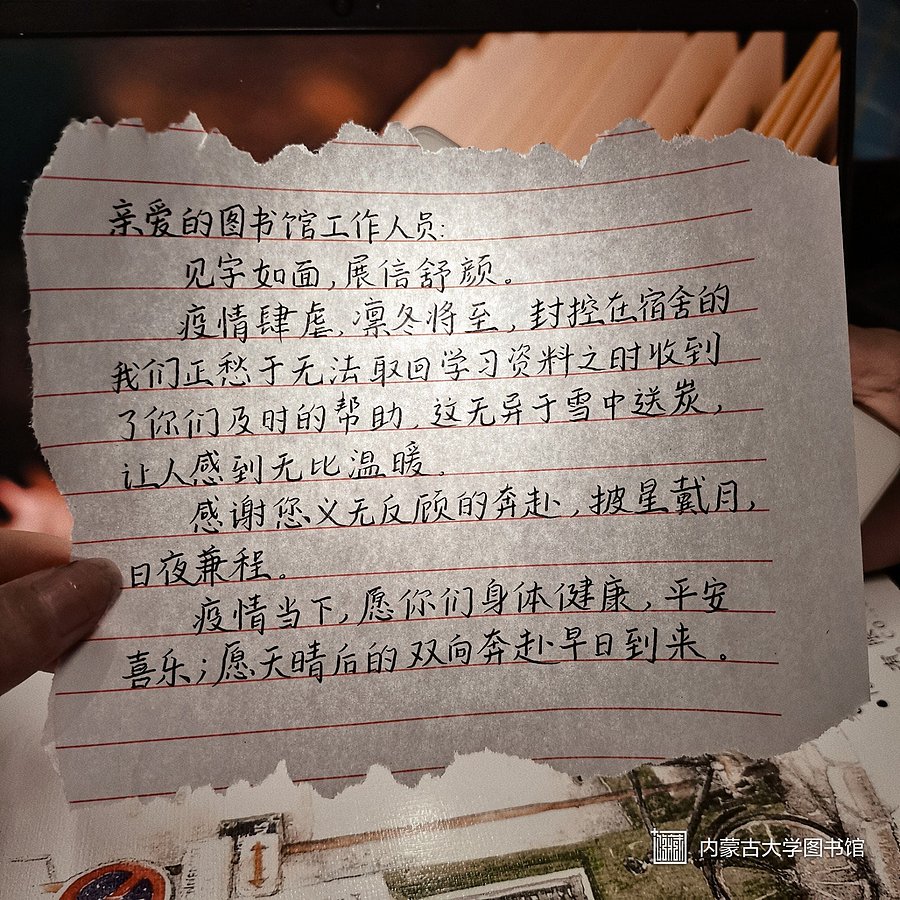 亲爱的图书馆工作人员:
见字如面,展信舒颜。
疫情肆虐,凛冬将至,封控在宿舍的
我们正愁于无法取回学习资料之时收到
了你们及时的帮助,这无异于雪中送炭,
让人感到无比温暖。
感谢您义无反顾的奔赴,披星戴月,
日夜兼程。
疫情当下,愿你们身体健康,平安
喜乐;愿天晴后的双向奔赴早日到来。
内蒙古大学图书馆